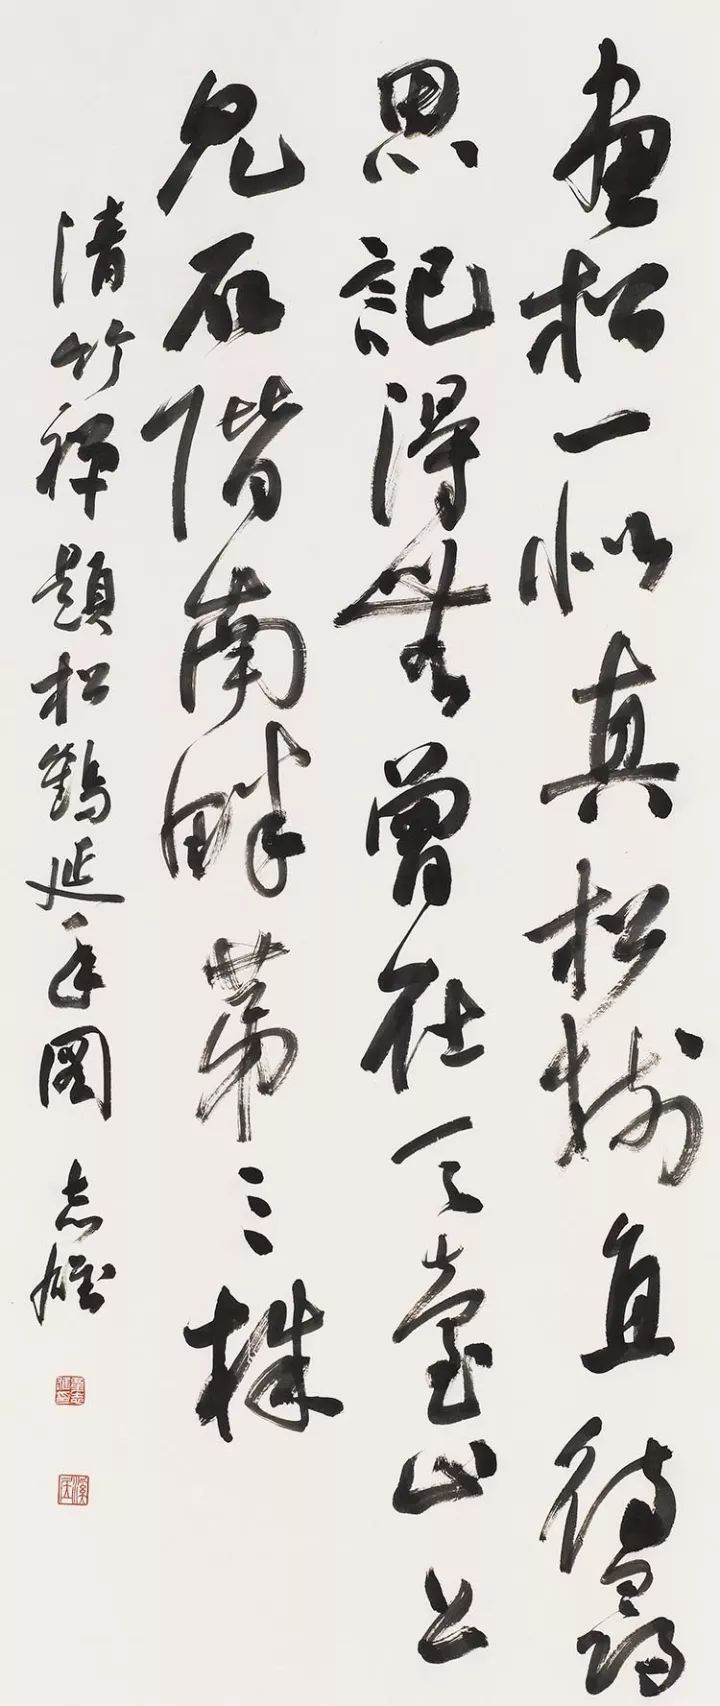 畫松一似真松樹且待尋
思記得無曾在天臺山上
見石階南畔第三株
清竹禪題松鶴延年圖 志雄